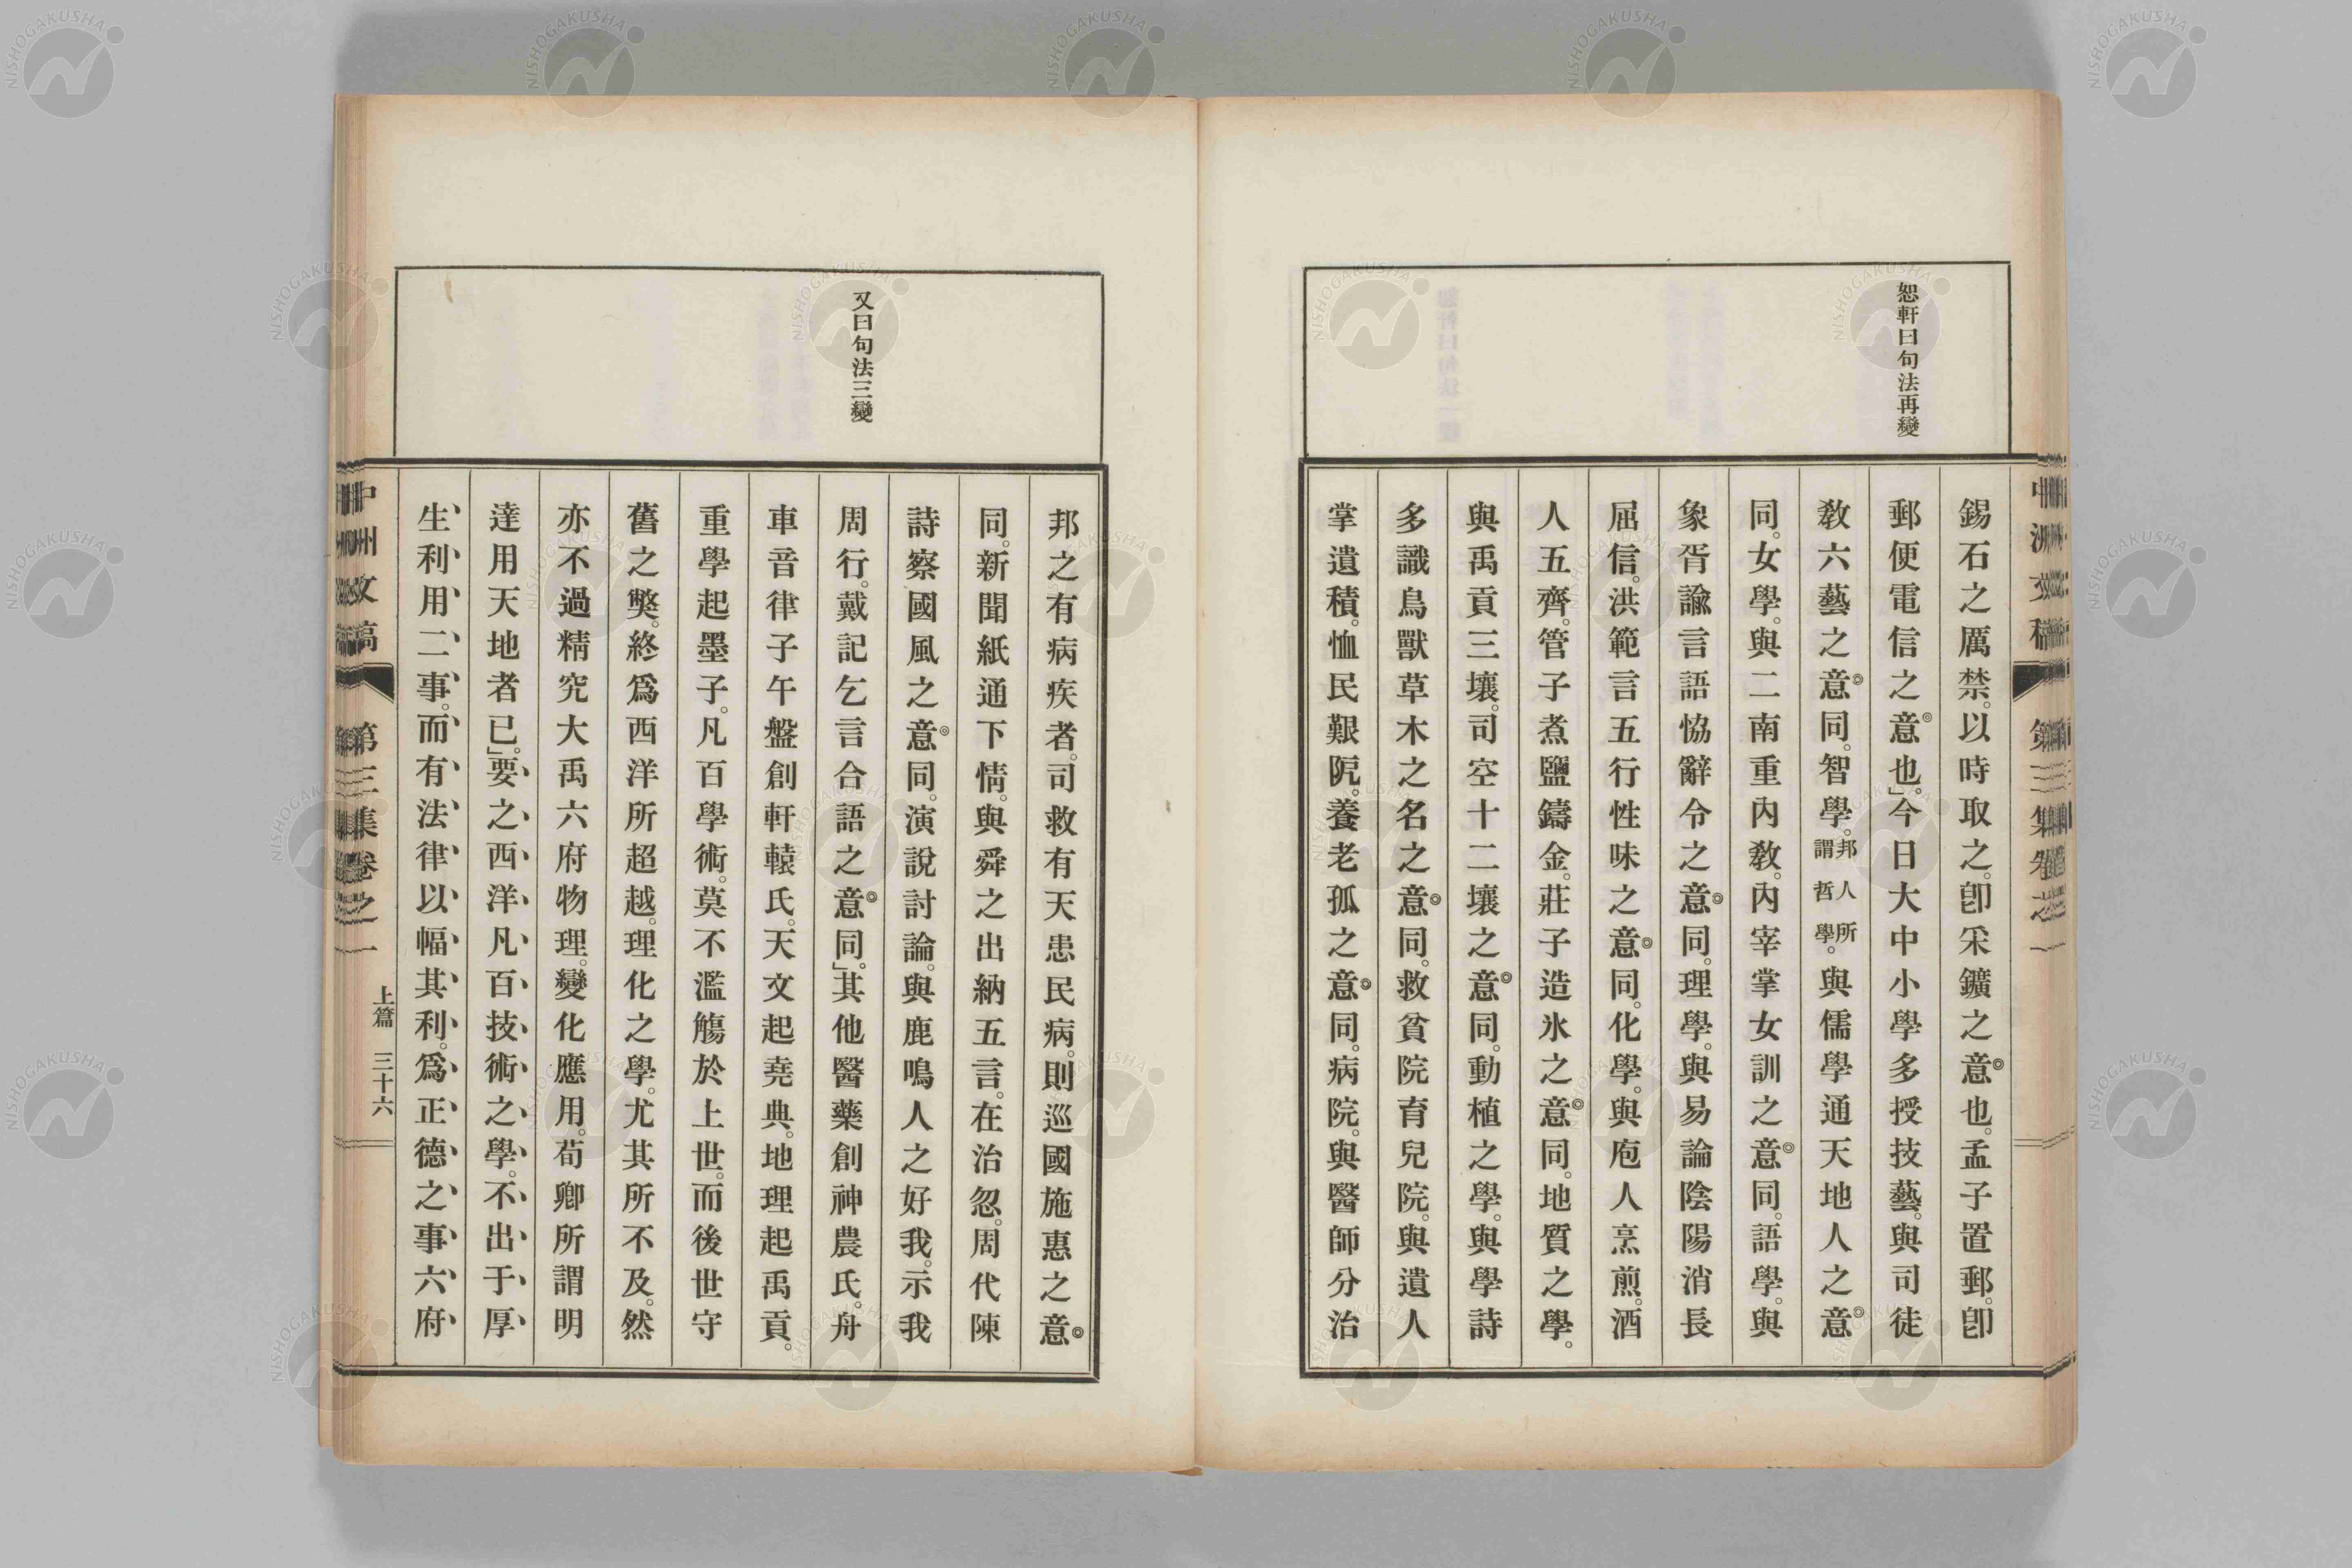 恕軒曰句法再變
錫石之厲禁。以時取之。卽采鑛之意也。孟子置郵。卽
郵便電信之意也。」今日大中小學多授技藝。與司徒
敎六藝之意同。智學。邦人所謂哲學。與儒學通天地人之意
同。女學。與二南重內敎。內宰掌女訓之意同。語學。與
象胥諭言語恊辭令之意同。理學。與易論陰陽消長
屈信。洪範言五行性味之意同。化學。與庖人烹煎。酒
人五齊。管子煮鹽鑄金。莊子造氷之意同。地質之學。
與禹貢三壤。司空十二壤之意同。動植之學。與學詩
多識鳥獸草木之名之意同。救貧院育兒院。與遺人
掌遺積。恤民艱阨。養老孤之意同。病院。與醫師分治
又曰句法三變
邦之有病疾者。司救有天患民病。則巡國施惠之意
同。新聞紙通下情。與舜之出納五言。在治忽。周代陳
詩察國風之意同。演說討論。與鹿鳴人之好我。示我
周行。戴記乞言合語之意同。」其他醫藥創神農氏。舟
車音律子午盤創軒轅氏。天文起堯典。地理起禹貢。
重學起墨子。凡百學術。莫不濫觴於上世。而後世守
舊之獘。終爲西洋所超越。理化之學。尤其所不及。然
亦不過精究大禹六府物理。變化應用。荀卿所謂明
達用天地者已。」要之西洋凡百技術之學。不出于厚
生利用二事。而有法律以幅其利。爲正德之事六府
中州文稿 第三集卷之一 上篇 三十六